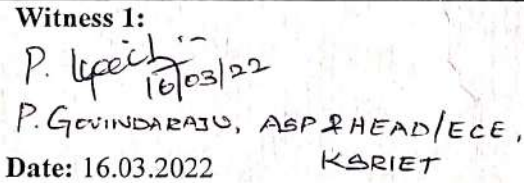 Witness 1:
P.
16/03/22
P. GOVINDARAJU, ASP & HEAD/ECE,
KSRIET
Date: 16.03.2022